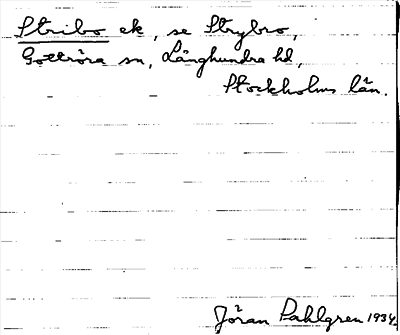 Stribo ek, se Strybro,
Gottröra sn, Långhundra hd,
Stockholms län.
Jöran Sahlgren 1934.